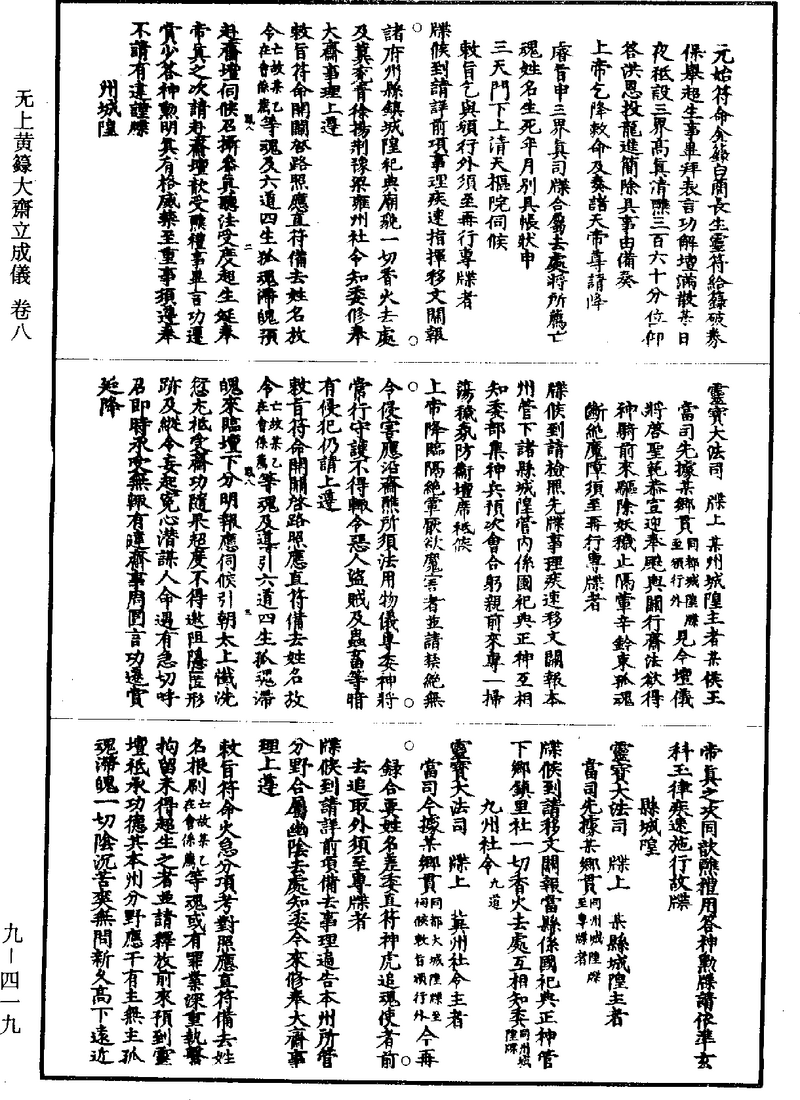 元始符命金籙白簡長生靈符給籙破券
保舉超生事畢拜表言功解壇滿散某日
夜祇設三界高真清醮三百六十分位仰
答洪恩投龍進簡除具事由備奏
上帝乞降敕命及奏諸天帝尊請降
睿旨申三界真司牒合屬去處將所薦亡
魂姓名生死年月別具帳狀申
三天門下上清天樞院伺候
敕旨乞與頒行外須至再行專牒者
牒候到請詳前項事理疾速指揮移文關報
諸府州縣鎮城隍祀典廟貌一切香火去處
及冀兗青徐揚荊豫梁雍州社令知委修奉
大齋事理上遵
敕旨符命開關啓路照應直符備去姓名故
令亡故某乙在會係薦等魂及六道四生孤魂滯魄預
赴齋壇伺候召攝參真聽法受度超生延奉
帝真之次請赴齋壇歆受醮禮事畢言功遷
賞少答神勳明真有格威藥至重事須遵奉
不請有違謹牒
州城隍
靈寶大法司 牒上 某州城隍主者某侯王
當司先據某鄉貫同都城隍牒至頒行外見今壇儀
將啓聖範恭宣迎奉飈輿關行齋法欲得
神騎前來驅除妖穢止隔葷辛鈐束孤魂
斷絶魔障須至再行專牒者
牒候到請檢照先牒事理疾速移文關報本
州管下諸縣城隍管內係國祀典正神互相
知委部集神兵預次會合躬親前來專一掃
蕩穢氛防衛壇席祇候
上帝降臨隔絶葷厭欲魔害者並請禁絶無
令侵害應沿齋醮所須法用物儀專委神將
常行守護不得輒令惡人盜賊及蟲畜等暗
有侵犯仍請上遵
敕旨符命開關啓路照應直符備去姓名故
令亡故某乙在會係薦等魂及導引六道四生孤魂滯
魄來臨壇下分明報應伺候引朝太上懺洗
愆尤祇受齋功隨果超度不得邀阻隱匿形
跡及縱令妄起冤心潛謀人命遇有急切呼
召即時承受無輒有違齋事周圓言功遷賞
延降
帝真之次同歆醮禮用答神勳牒請依準玄
科玉律疾速施行故牒
縣城隍
靈寶大法司 牒上 某縣城隍主者
當司先據某鄉貫同州城隍牒至專牒者
牒候到請移文關報當縣係國祀典正神管
下鄉鎮里社一切香火去處互相知委同州城隍牒
九州社令九道
靈寶大法司 牒上 冀州社令主者
當司今據某鄉貫同都大城隍牒至伺候敕旨頒行外今再
録合要姓名差委直符神虎追魂使者前
去追取外須至專牒者
牒候到請詳前項備去事理遍告本州所管
分野合屬幽陰去處知委今來修奉大齋事
理上遵
敕旨符命火急分項考對照應直符備去姓
名根刷亡故某乙在會係薦等魂或有罪業深重執繫
拘留未得超生之者並請釋放前來預到靈
壇祇承功德其本州分野應干有主無主孤
魂滯魄一切陰沉苦爽無問新久高下遠近
无上黄籙大齋立成儀 卷八
九—四一九